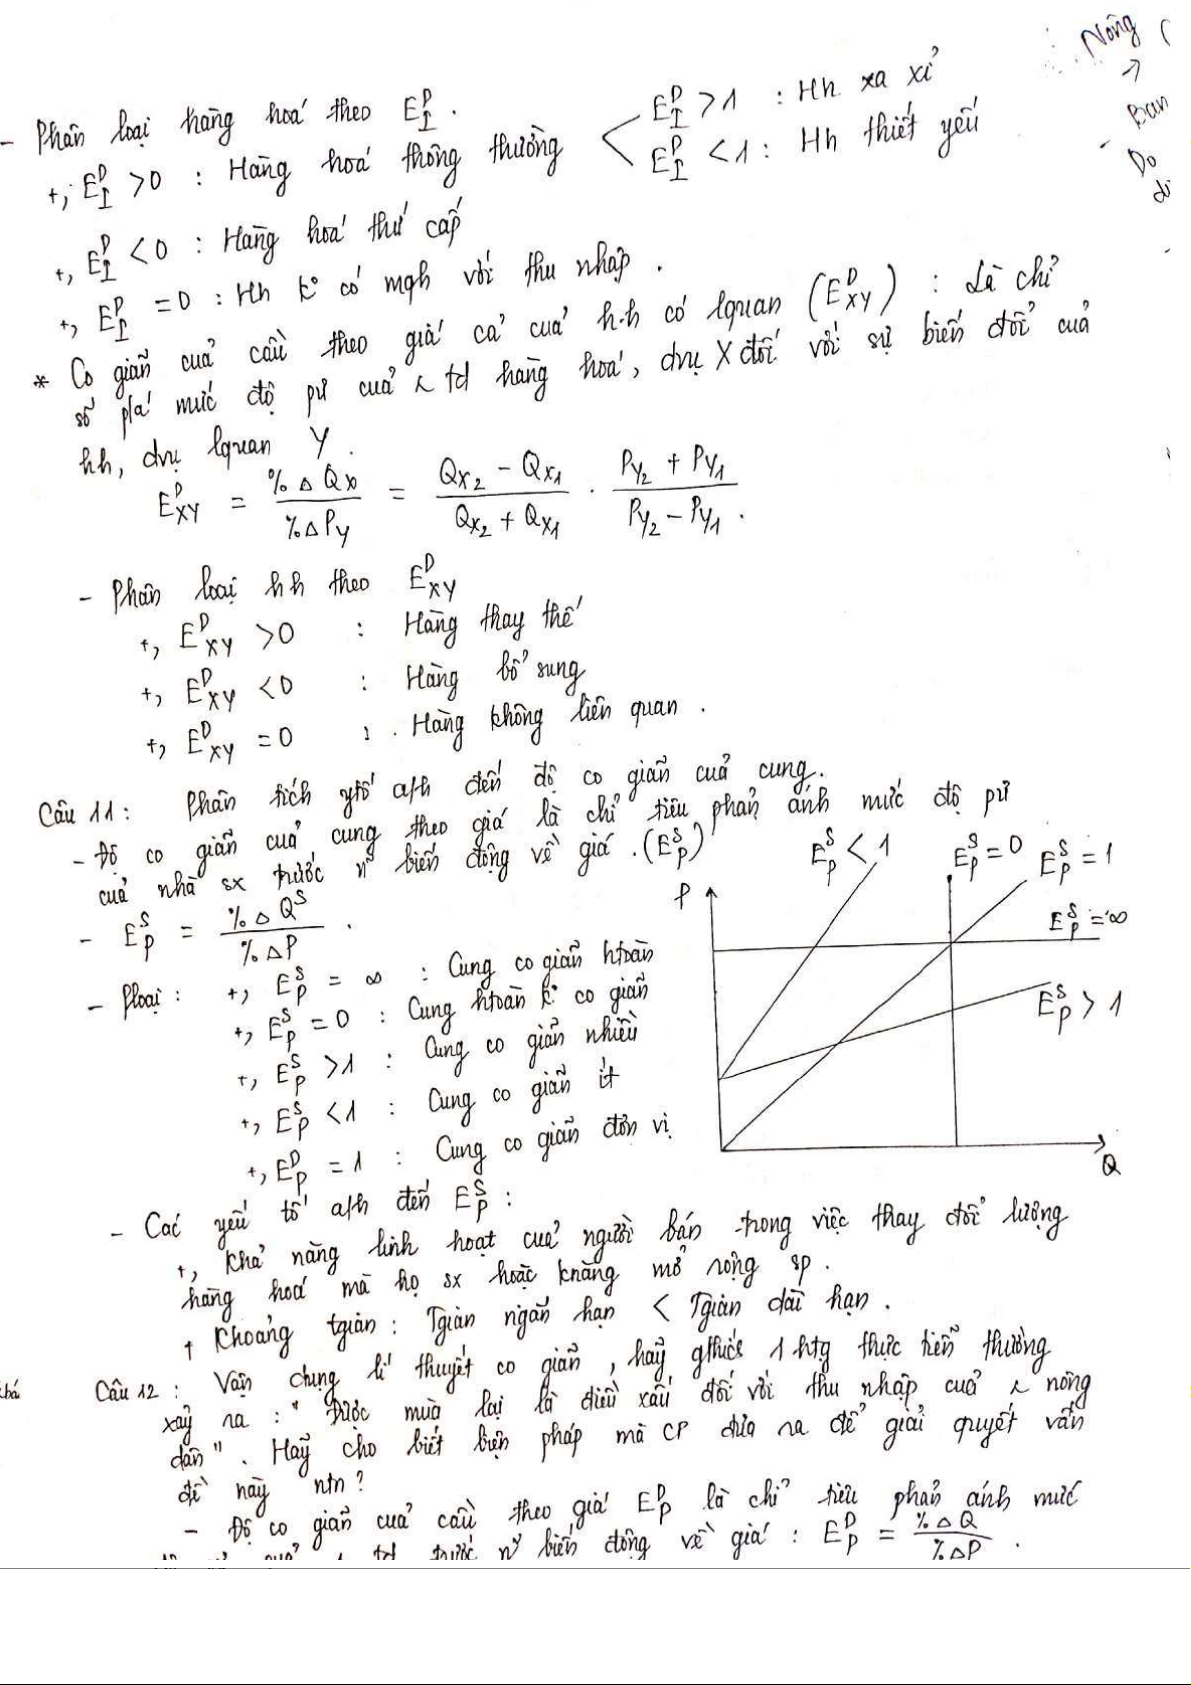 Nông (
→
Ban
- Do
di
- Phân loại hàng hoá theo E^D_I .
+, E^D_I > 0 : Hàng hoá thông thường < E^D_I > 1 : Hh xa xỉ
E^D_I < 1 : Hh thiết yếu
+, E^D_I < 0 : Hàng hoá thứ cấp
+, E^D_I = 0 : Hh k° có mqh với thu nhập .
* Co giãn của cầu theo giá cả của h.h có lquan (E^D_XY) : Là chỉ
số p/a' mức độ pứ của n td hàng hoá, dvụ X đối với sự biến đổi của
hh, dvụ lquan Y .
E^D_XY = %ΔQx / %ΔPy = (Qx2 − Qx1) / (Qx2 + Qx1) . (Py2 + Py1) / (Py2 − Py1) .
- Phân loại hh theo E^D_XY
+, E^D_XY > 0 : Hàng thay thế
+, E^D_XY < 0 : Hàng bổ sung
+, E^D_XY = 0 : . Hàng không liên quan .
Câu 11 : Phân tích ytố a/h đến độ co giãn của cung.
- Độ co giãn của cung theo giá là chỉ tiêu phản ánh mức độ pứ
của nhà sx trước n~ biến động về giá . (E^S_P)
- E^S_P = %ΔQ^S / %ΔP .
- Ploại : +, E^S_P = ∞ : Cung co giãn htoàn
+, E^S_P = 0 : Cung htoàn k° co giãn
+, E^S_P > 1 : Cung co giãn nhiều
+, E^S_P < 1 : Cung co giãn ít
+, E^D_P = 1 : Cung co giãn đơn vị
E^S_P < 1
E^S_P = 0
E^S_P = 1
P
E^S_P = ∞
E^S_P > 1
Q
- Các yếu tố a/h đến E^S_P :
+, Khả năng linh hoạt của người bán trong việc thay đổi lượng
hàng hoá mà họ sx hoặc knăng mở rộng sp .
+ Khoảng tgian : Tgian ngắn hạn < Tgian dài hạn .
Câu 12 : Vận dụng lí thuyết co giãn , hãy gthích 1 htg thực tiễn thường
xảy ra : " Được mùa lại là điều xấu đối với thu nhập của n nông
dân " . Hãy cho biết biện pháp mà CP đưa ra để giải quyết vấn
đề này ntn ?
- Độ co giãn của cầu theo giá E^D_P là chỉ tiêu phản ánh mức
td trước n~ biến động về giá : E^D_P = %ΔQ / %ΔP .